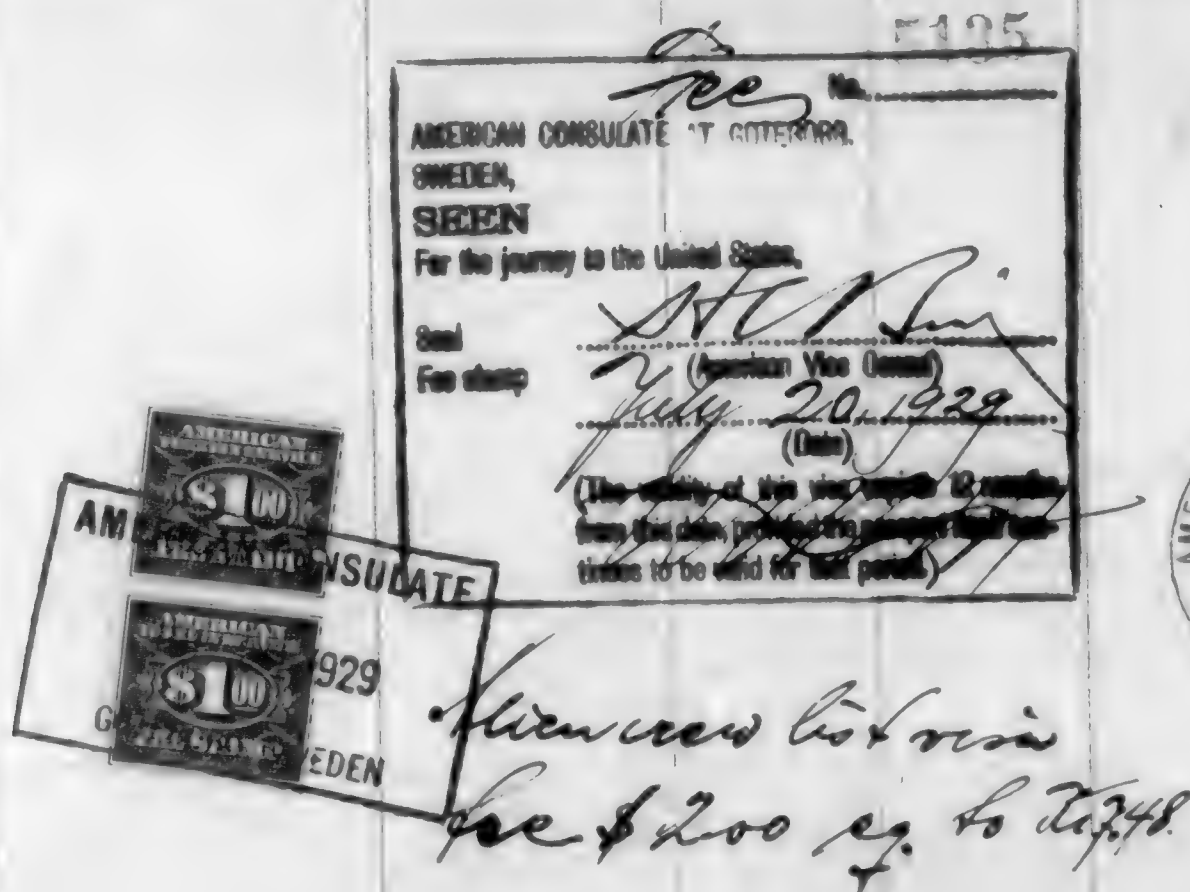 5135
Fee No.
AMERICAN CONSULATE AT GOTEBORG,
SWEDEN,
SEEN
For the journey to the United States,
Seal
Fee stamp
(American Vice Consul)
July 20, 1929
(Date)
(The validity of this visa expires 12 months
from this date, provided the passport
tinues to be valid for that period.)
AMERICAN
$1 00
FEE STAMP
AM NSULATE
AMERICAN
$1 00
FEE STAMP
1929
G EDEN
Alien crew list visa
fee $ 2.00 eq. to Kr 7.48.
AME